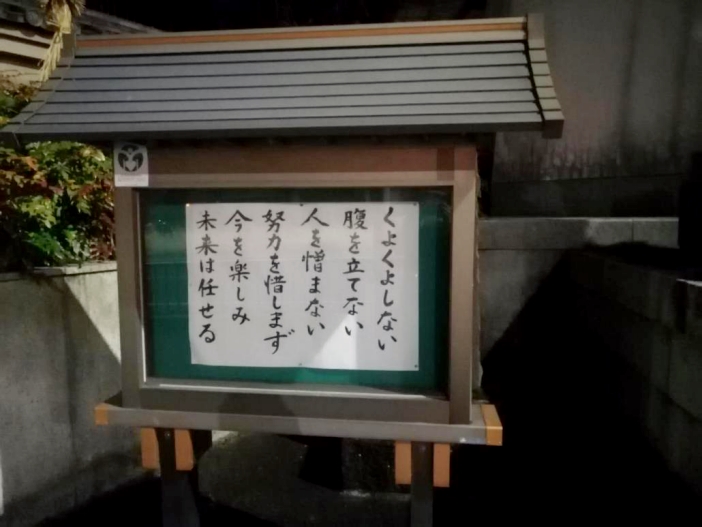 くよくよしない
腹を立てない
人を憎まない
努力を惜しまず
今を楽しみ
未来は任せる